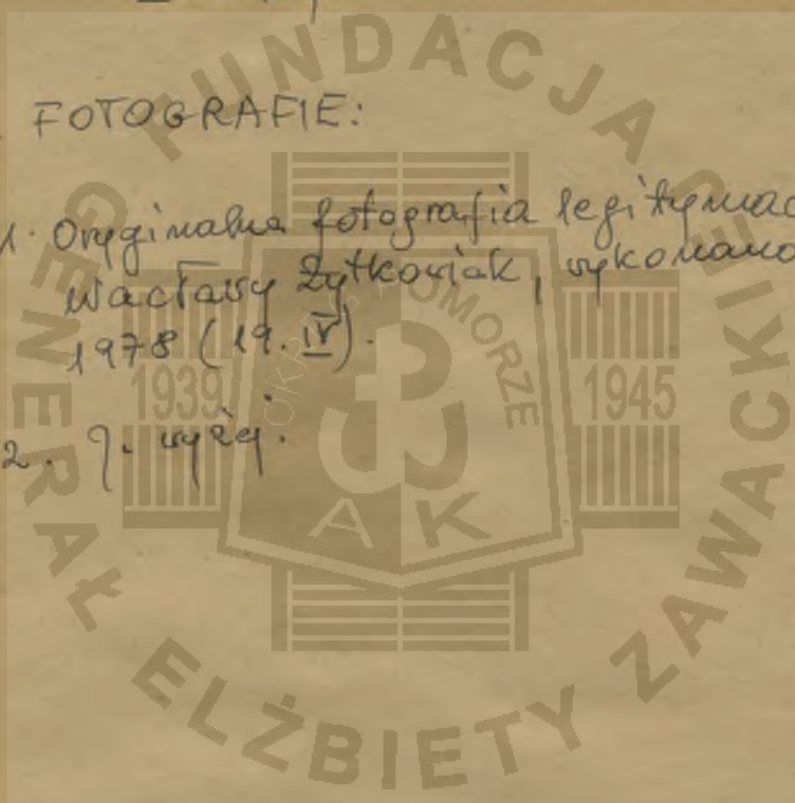 FOTOGRAFIE:
1. Oryginalna fotografia legitymac
Wacławy Żytkowiak, wykonano
1978 (19. IV).
2. J. wyżej.
FUNDACJA GENERAŁ ELŻBIETY ZAWACKIEJ
OKRĘG POMORZE
1939
1945
A K